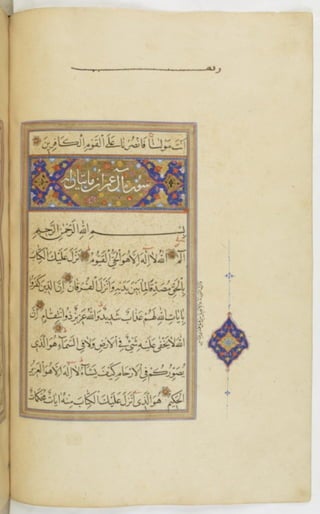 انت مولينا فانصرنا على القوم الكافرين
سورة آل عمران مايتا اية
بسم الله الرحمن الرحيم
الم الله لا اله الا هو الحي القيوم نزل عليك الكتاب
بالحق مصدقا لما بين يديه وانزل الفرقان ان الذين كفروا
بايات الله لهم عذاب شديد والله عزيز ذو انتقام ان
الله لا يخفى عليه شيء في الارض ولا في السماء هو الذي
يصوركم في الارحام كيف يشاء لا اله الا هو العزيز
الحكيم هو الذي انزل عليك الكتاب منه ايات محكمات